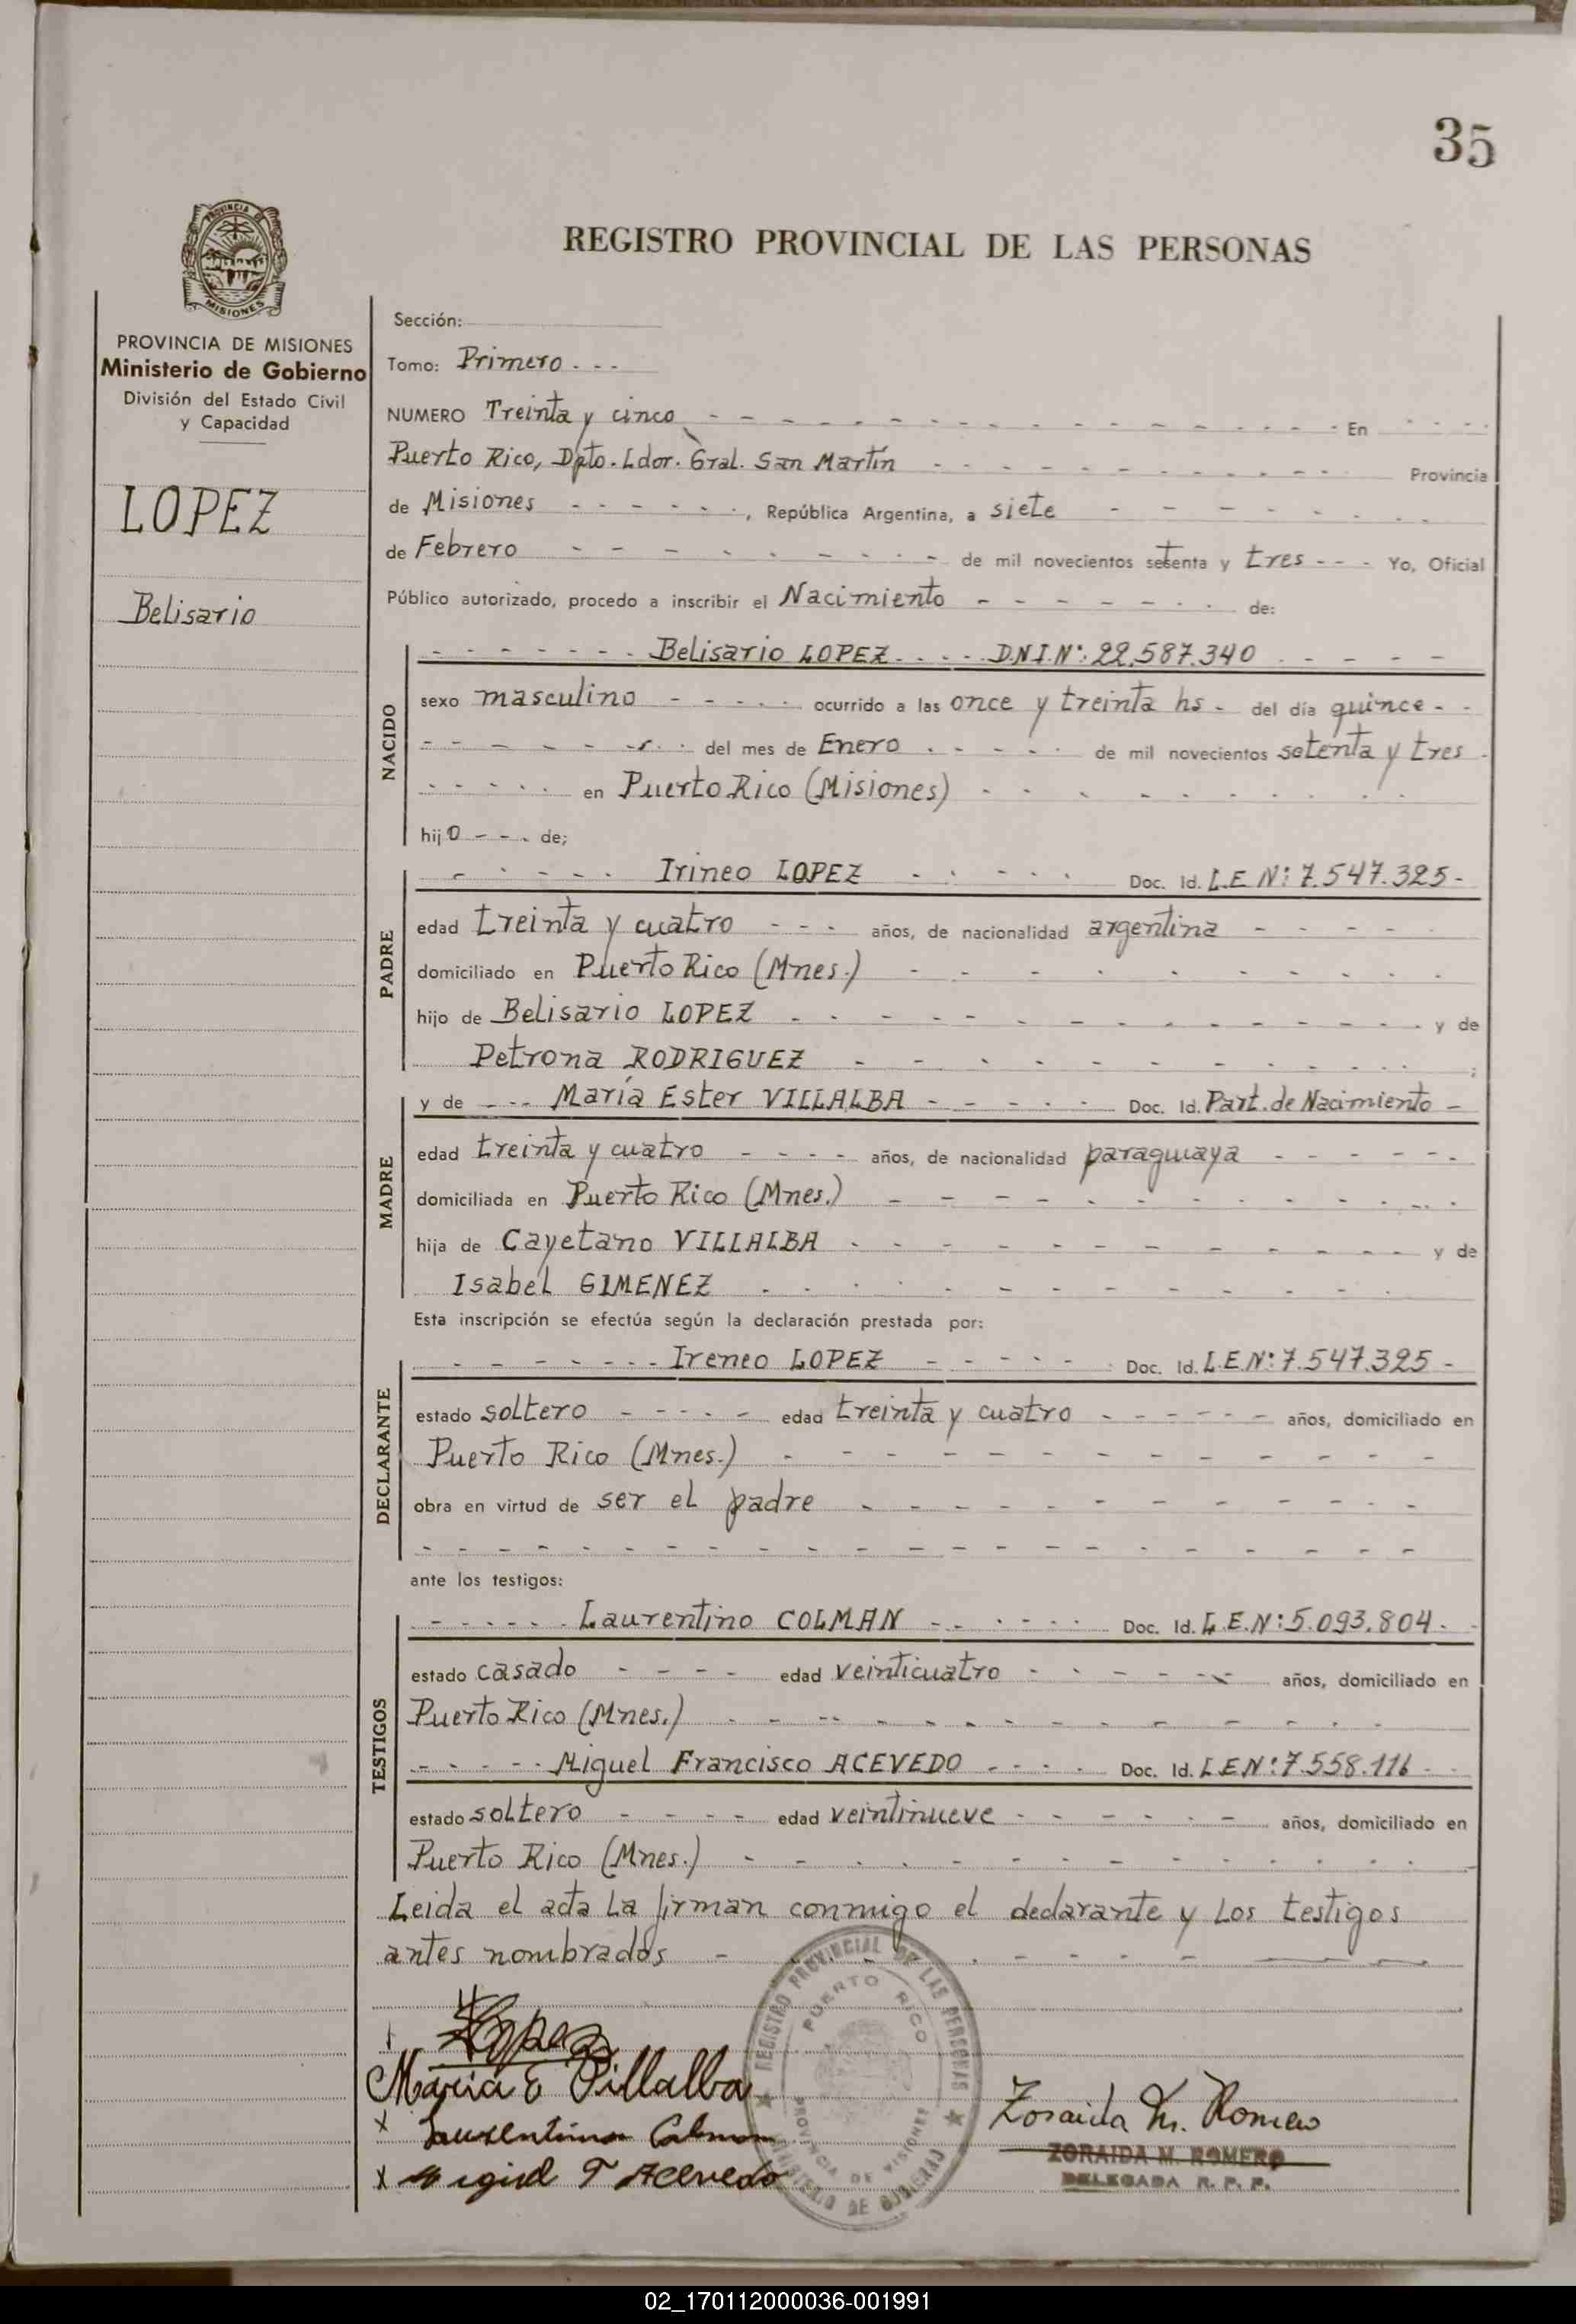 35
REGISTRO PROVINCIAL DE LAS PERSONAS
PROVINCIA DE MISIONES
MISIONES
PROVINCIA DE MISIONES
Ministerio de Gobierno
División del Estado Civil
y Capacidad
LOPEZ
Belisario
Sección:
Tomo: Primero - - -
NUMERO Treinta y cinco - - - En - - -
Puerto Rico, Dpto. Ldor. Gral. San Martín - - - Provincia
de Misiones - - - , República Argentina, a siete - - -
de Febrero - - - de mil novecientos setenta y tres - - - Yo, Oficial
Público autorizado, procedo a inscribir el Nacimiento - - - de:
NACIDO
- - - Belisario LOPEZ - - - D.N.I.Nº: 22.587.340 - - -
sexo masculino - - - ocurrido a las once y treinta hs - del día quince - -
- - - del mes de Enero - - - de mil novecientos setenta y tres -
- - - en Puerto Rico (Misiones) - - -
hijo - - - de;
PADRE
- - - Irineo LOPEZ - - - Doc. Id. L.E Nº: 7.547.325 -
edad treinta y cuatro - - - años, de nacionalidad argentina - - -
domiciliado en Puerto Rico (Mnes.) - - -
hijo de Belisario LOPEZ - - - y de
Petrona RODRIGUEZ - - - ;
MADRE
y de - - - María Ester VILLALBA - - - Doc. Id. Part. de Nacimiento -
edad treinta y cuatro - - - años, de nacionalidad paraguaya - - -
domiciliada en Puerto Rico (Mnes.) - - -
hija de Cayetano VILLALBA - - - y de
Isabel GIMENEZ - - -
Esta inscripción se efectúa según la declaración prestada por:
DECLARANTE
- - - Ireneo LOPEZ - - - Doc. Id. L.E.Nº: 7.547.325 -
estado soltero - - - edad treinta y cuatro - - - años, domiciliado en
Puerto Rico (Mnes.) - - -
obra en virtud de ser el padre - - -
- - -
ante los testigos:
TESTIGOS
- - - Laurentino COLMAN - - - Doc. Id. L.E.Nº: 5.093.804 -
estado casado - - - edad veinticuatro - - - años, domiciliado en
Puerto Rico (Mnes.) - - -
- - - Miguel Francisco ACEVEDO - - - Doc. Id. L.E.Nº: 7.558.116 - -
estado soltero - - - edad veintinueve - - - años, domiciliado en
Puerto Rico (Mnes.) - - -
Leida el acta la firman conmigo el declarante y los testigos
antes nombrados - - -
Lopez
María E Villalba
x Laurentino Colman
x Miguel F Acevedo
REGISTRO PROVINCIAL DE LAS PERSONAS
PUERTO RICO
PROVINCIA DE MISIONES
MINISTERIO DE GOBIERNO
Zoraida M. Romero
ZORAIDA M. ROMERO
DELEGADA R. P. P.
02_170112000036-001991